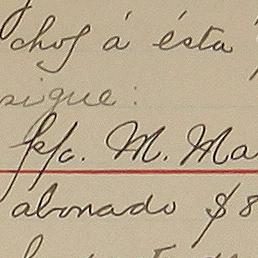 chos á ésta
sigue:
p/c. M. Ma
abonado $8